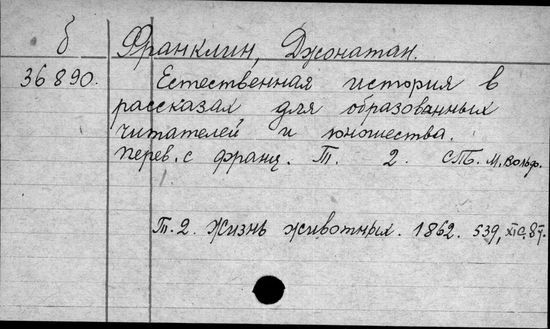 б Франклин, Джонатан.
36890. Естественная история в
рассказах для образованных
читателей и юношества.
Перев. с франц. Т. 2. СПб. М. Вольф.
Т. 2. Жизнь животных. 1862. 539,